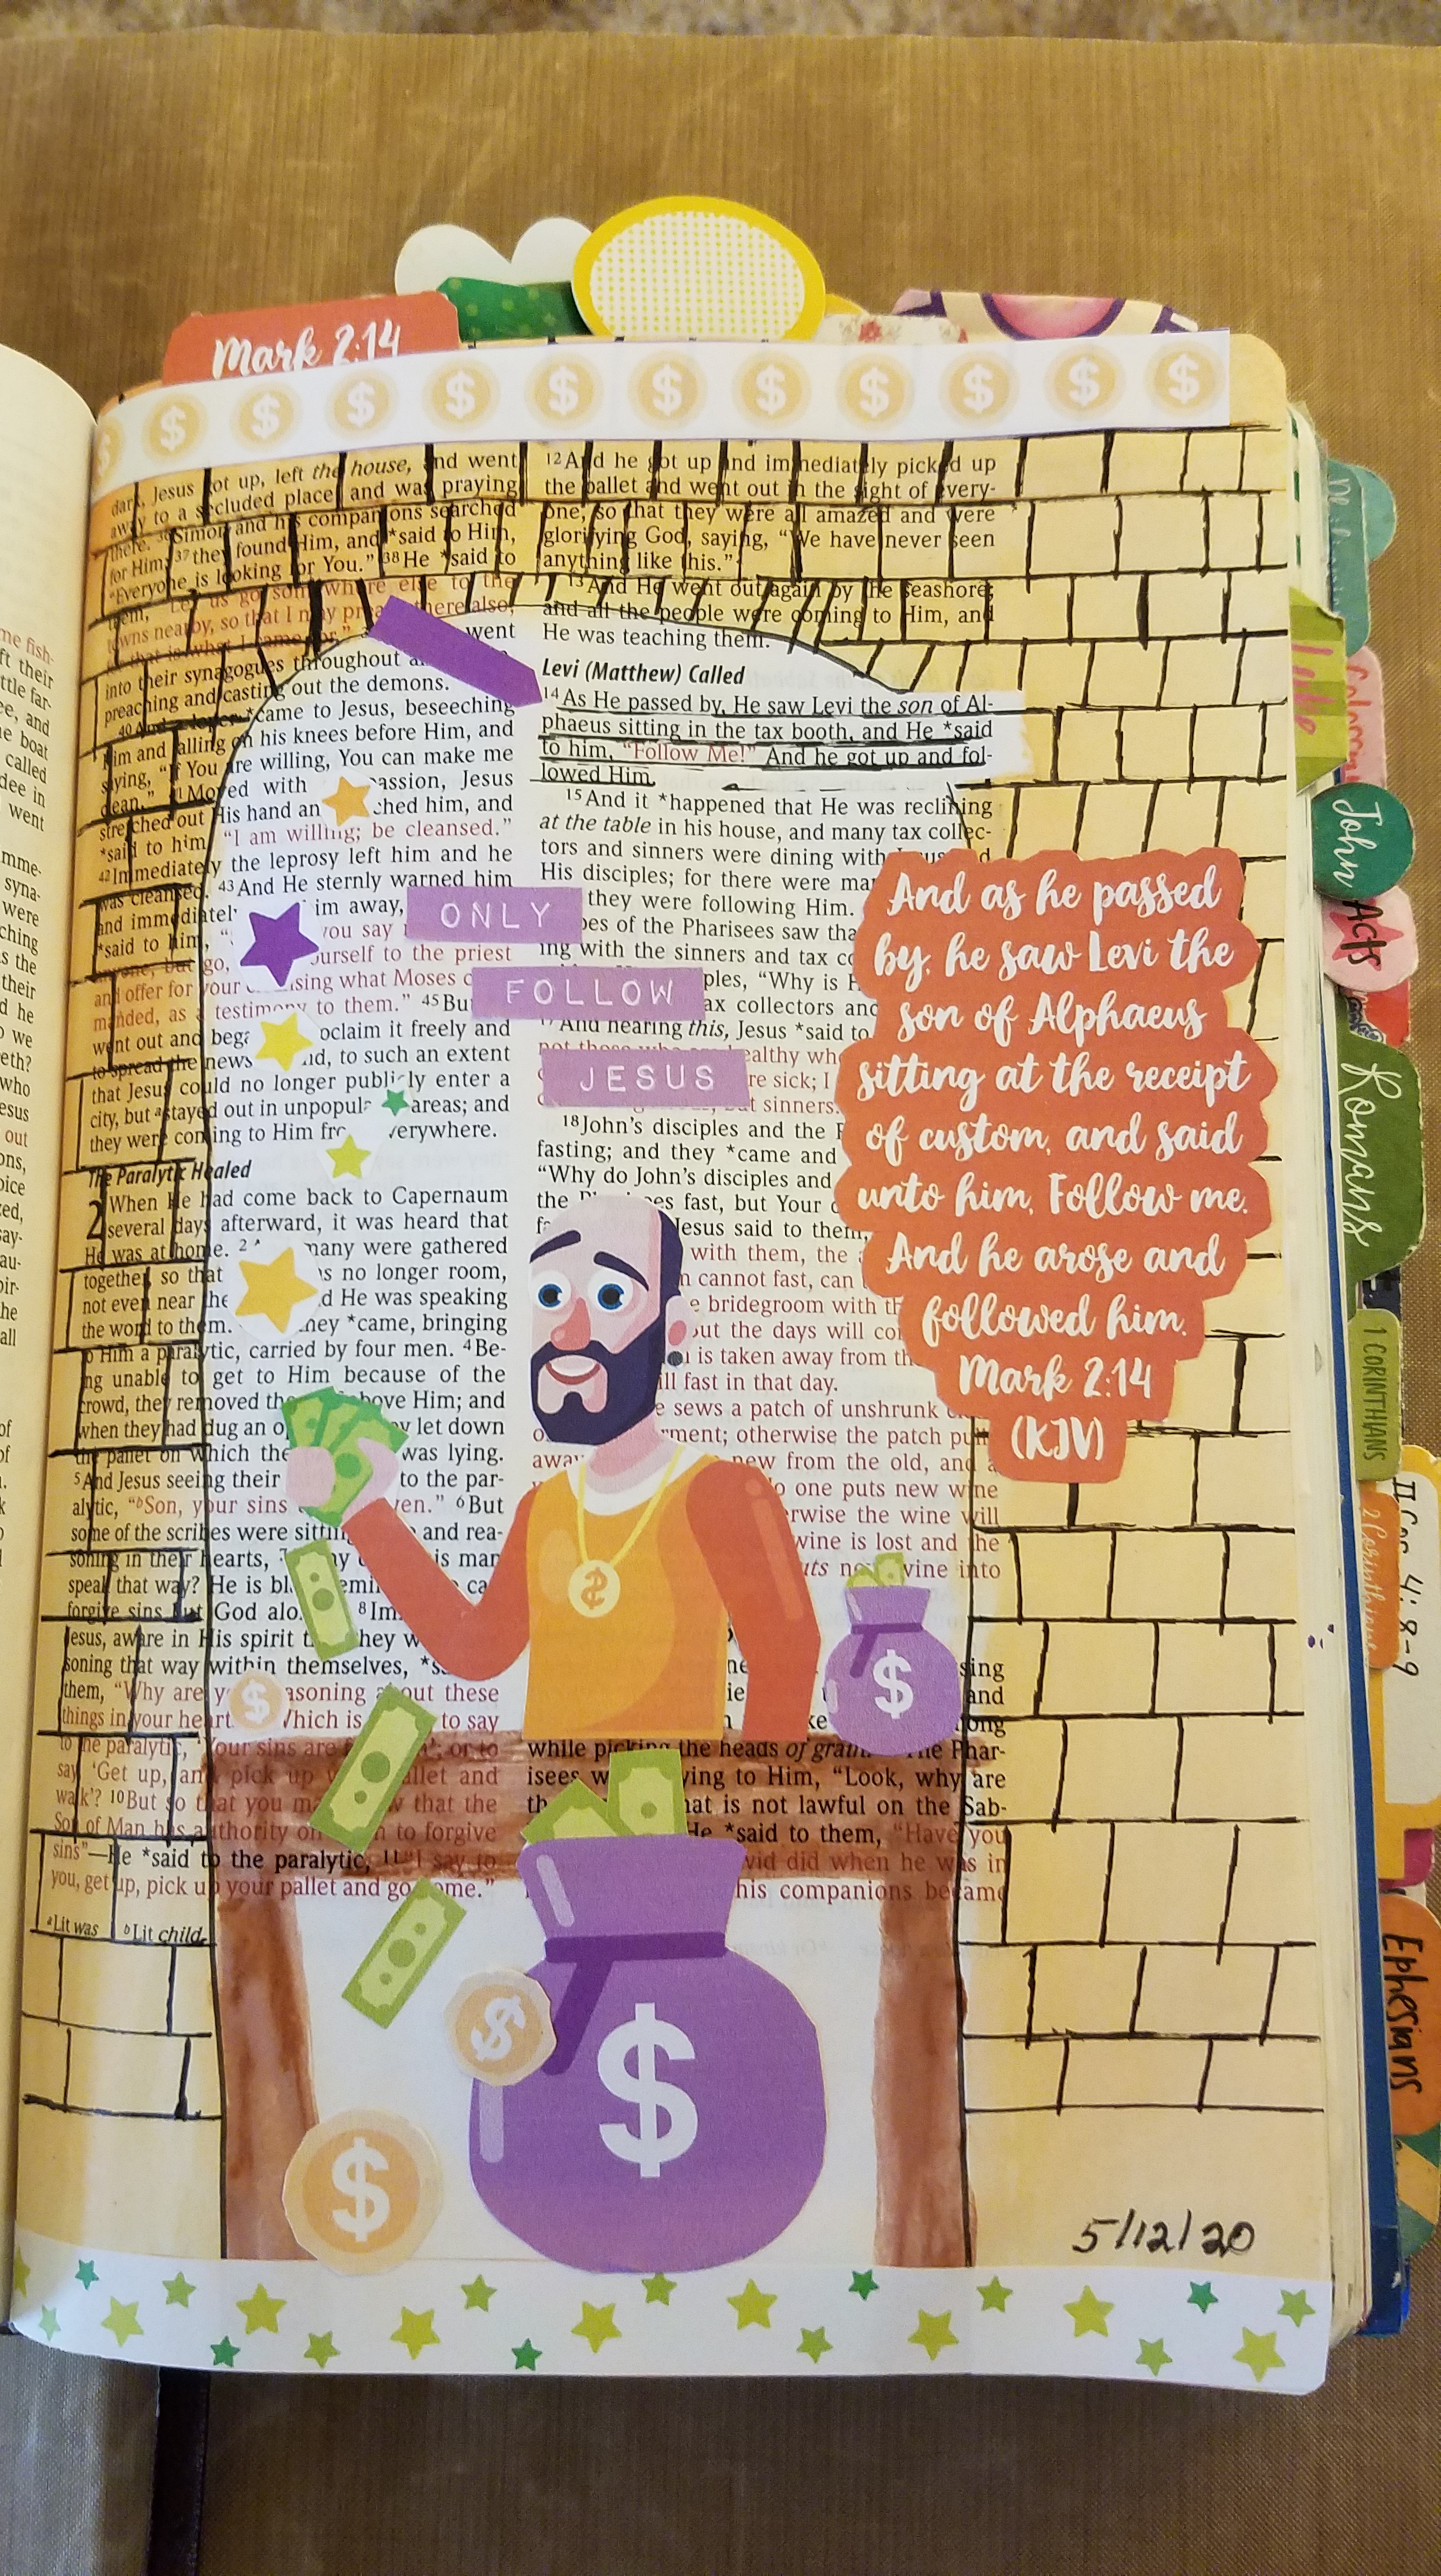 Mark 2:14
$ $ $ $ $ $ $ $ $ $ $
dark, Jesus got up, left the house, and went
away to a secluded place, and was praying
there. 36 Simon and his companions searched
for Him; 37 they found Him, and *said to Him,
"Everyone is looking for You." 38 He *said to
them, "Let us go somewhere else to the
towns nearby, so that I may preach there also;
for that is what I came for."
went
into their synagogues throughout
preaching and casting out the demons.
40 And a leper *came to Jesus, beseeching
Him and falling on his knees before Him, and
saying, "If You are willing, You can make me
clean." 41 Moved with passion, Jesus
stretched out His hand an ched him, and
*said to him, "I am willing; be cleansed."
42 Immediately the leprosy left him and he
was cleansed. 43 And He sternly warned him
and immediately im away,
*said to him, " you say
anyone, but go, ourself to the priest
and offer for your nsing what Moses
manded, as a testimony to them." 45 Bu
went out and bega oclaim it freely and
to spread the news nd, to such an extent
that Jesus could no longer publicly enter a
city, but stayed out in unpopula areas; and
they were coming to Him fro verywhere.
The Paralytic Healed
2 When He had come back to Capernaum
several days afterward, it was heard that
He was at home. 2 many were gathered
together, so that s no longer room,
not even near the d He was speaking
the word to them. hey *came, bringing
to Him a paralytic, carried by four men. 4 Be-
ing unable to get to Him because of the
crowd, they removed the bove Him; and
when they had dug an o let down
the pallet on which the was lying.
5 And Jesus seeing their to the par-
alytic, "b Son, your sins en." 6 But
some of the scribes were sittin and rea-
soning in their hearts, 7 y is man
speak that way? He is bl emin ca
forgive sins but God alo 8 Im
Jesus, aware in His spirit t hey w
soning that way within themselves, *s
them, "Why are y asoning about these
things in your heart Which is to say
to the paralytic, 'Your sins are or to
say, 'Get up, and pick up allet and
walk'? 10 But so that you ma that the
Son of Man has authority on to forgive
sins"—He *said to the paralytic, 11 "I say to
you, get up, pick up your pallet and go ome."
a Lit was b Lit child
12 And he got up and immediately picked up
the pallet and went out in the sight of every-
one, so that they were all amazed and were
glorifying God, saying, "We have never seen
anything like this."
13 And He went out again by the seashore;
and all the people were coming to Him, and
He was teaching them.
Levi (Matthew) Called
14 As He passed by, He saw Levi the son of Al-
phaeus sitting in the tax booth, and He *said
to him, "Follow Me!" And he got up and fol-
lowed Him.
15 And it *happened that He was reclining
at the table in his house, and many tax collec-
tors and sinners were dining with
His disciples; for there were ma
they were following Him.
bes of the Pharisees saw tha
ing with the sinners and tax co
ples, "Why is H
ax collectors and
17 And hearing this, Jesus *said to
not those who ealthy who
re sick; I
t sinners.
18 John's disciples and the P
fasting; and they *came and
"Why do John's disciples and
the es fast, but Your d
Jesus said to them,
with them, the
n cannot fast, can
e bridegroom with th
out the days will co
is taken away from th
ill fast in that day.
e sews a patch of unshrunk
rment; otherwise the patch pull
away new from the old, and a
o one puts new wine
erwise the wine will
wine is lost and the
uts new wine into
sing
and
ong
while picking the heads of grain. The Phar-
isees w ying to Him, "Look, why are
th hat is not lawful on the Sab-
He *said to them, "Have you
vid did when he was in
his companions became
ONLY
FOLLOW
JESUS
And as he passed
by, he saw Levi the
son of Alphaeus
sitting at the receipt
of custom, and said
unto him, Follow me.
And he arose and
followed him.
Mark 2:14
(KJV)
$
$
$
$
$
5/12/20
Luke
John
Acts
Romans
1 CORINTHIANS
II Cor 4:8-9
2 Corinthians
Ephesians